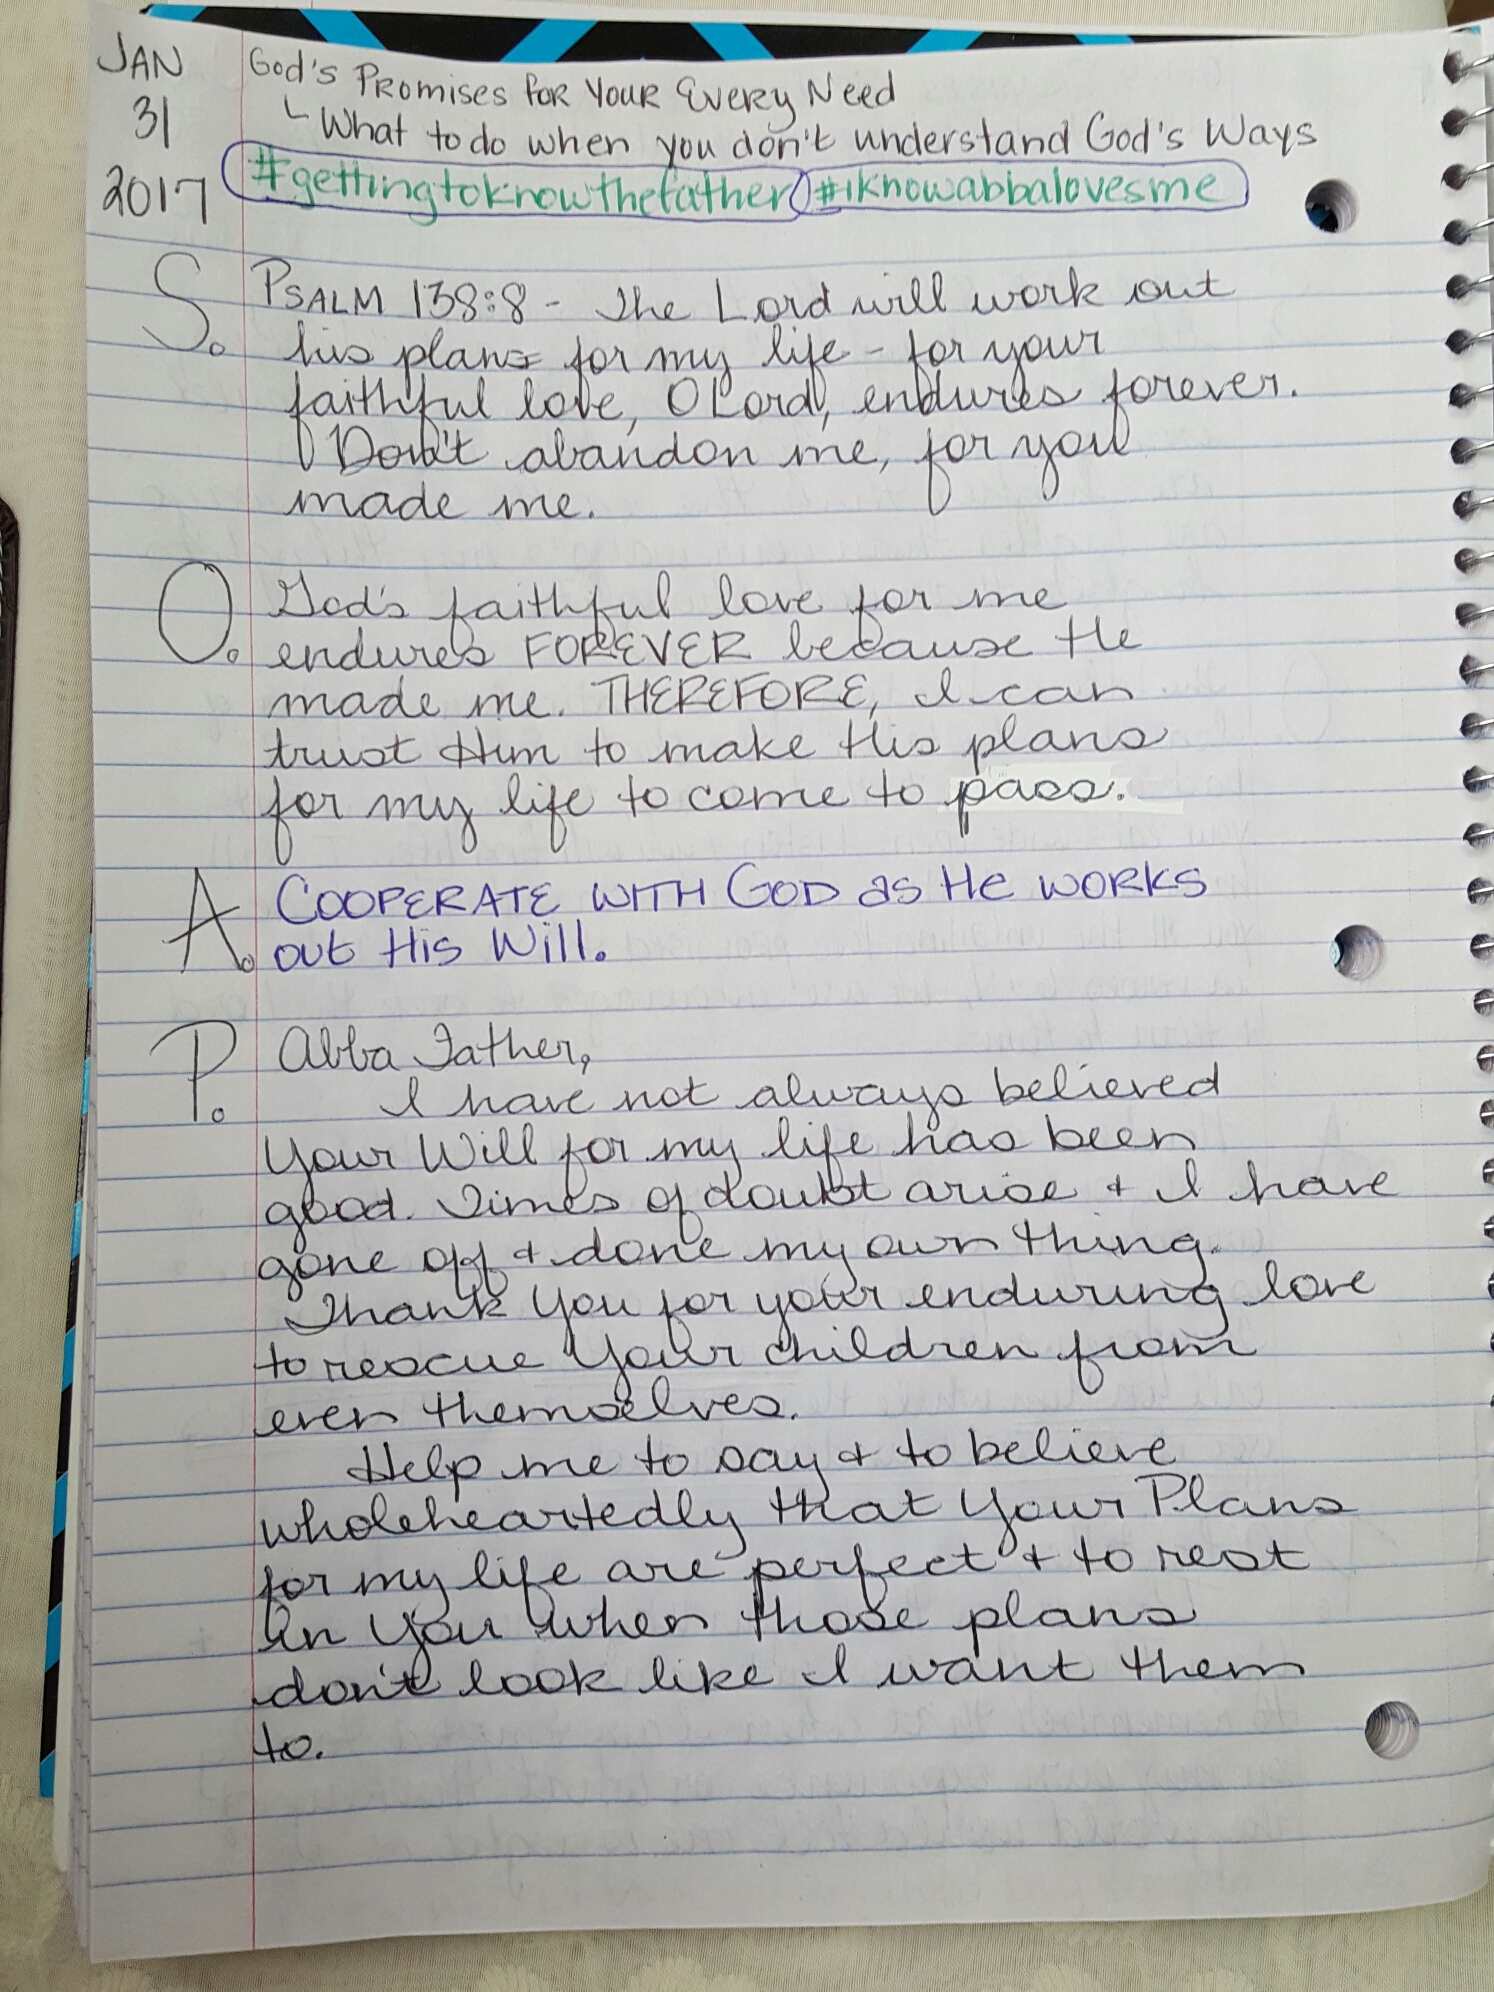 JAN
31
2017
God's Promises for Your Every Need
What to do when you don't understand God's Ways
#gettingtoknowthefather #iknowabbalovesme
S. PSALM 138:8 - The Lord will work out
his plans for my life - for your
faithful love, O Lord, endures forever.
Don't abandon me, for you
made me.
O. God's faithful love for me
endures FOREVER because He
made me. THEREFORE, I can
trust Him to make His plans
for my life to come to pass.
A. COOPERATE WITH GOD as He works
out His Will.
P. Abba Father,
I have not always believed
Your Will for my life has been
good. Times of doubt arise + I have
gone off + done my own thing.
Thank You for your enduring love
to rescue Your children from
even themselves.
Help me to say + to believe
wholeheartedly that Your Plans
for my life are perfect + to rest
in You when those plans
don't look like I want them
to.